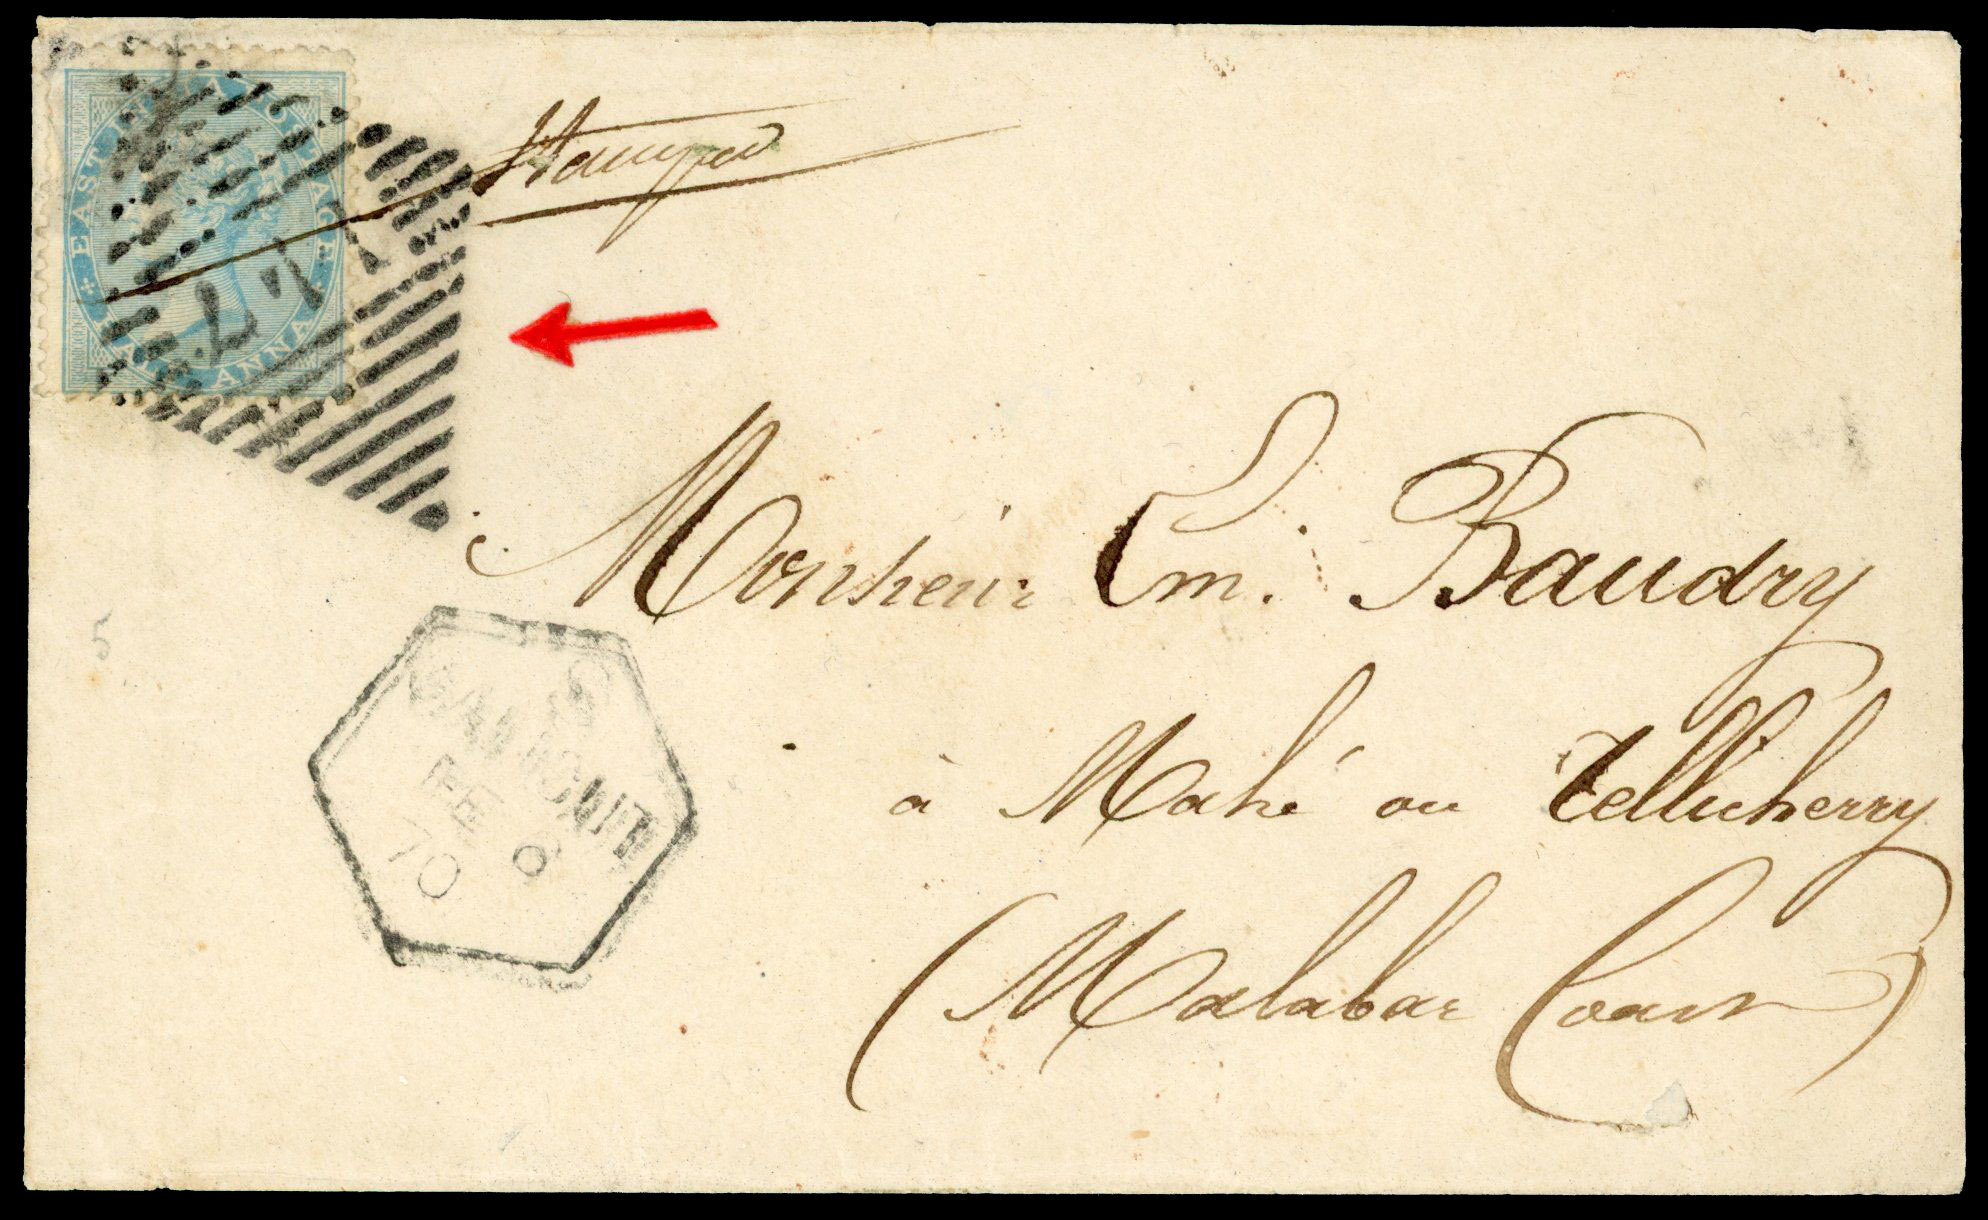 EAST INDIA POSTAGE
HALF ANNA
Stamped
Monsieur Em. Baudry
à Mahé ou Tellicherry
(Malabar Coast)
FE
70
5